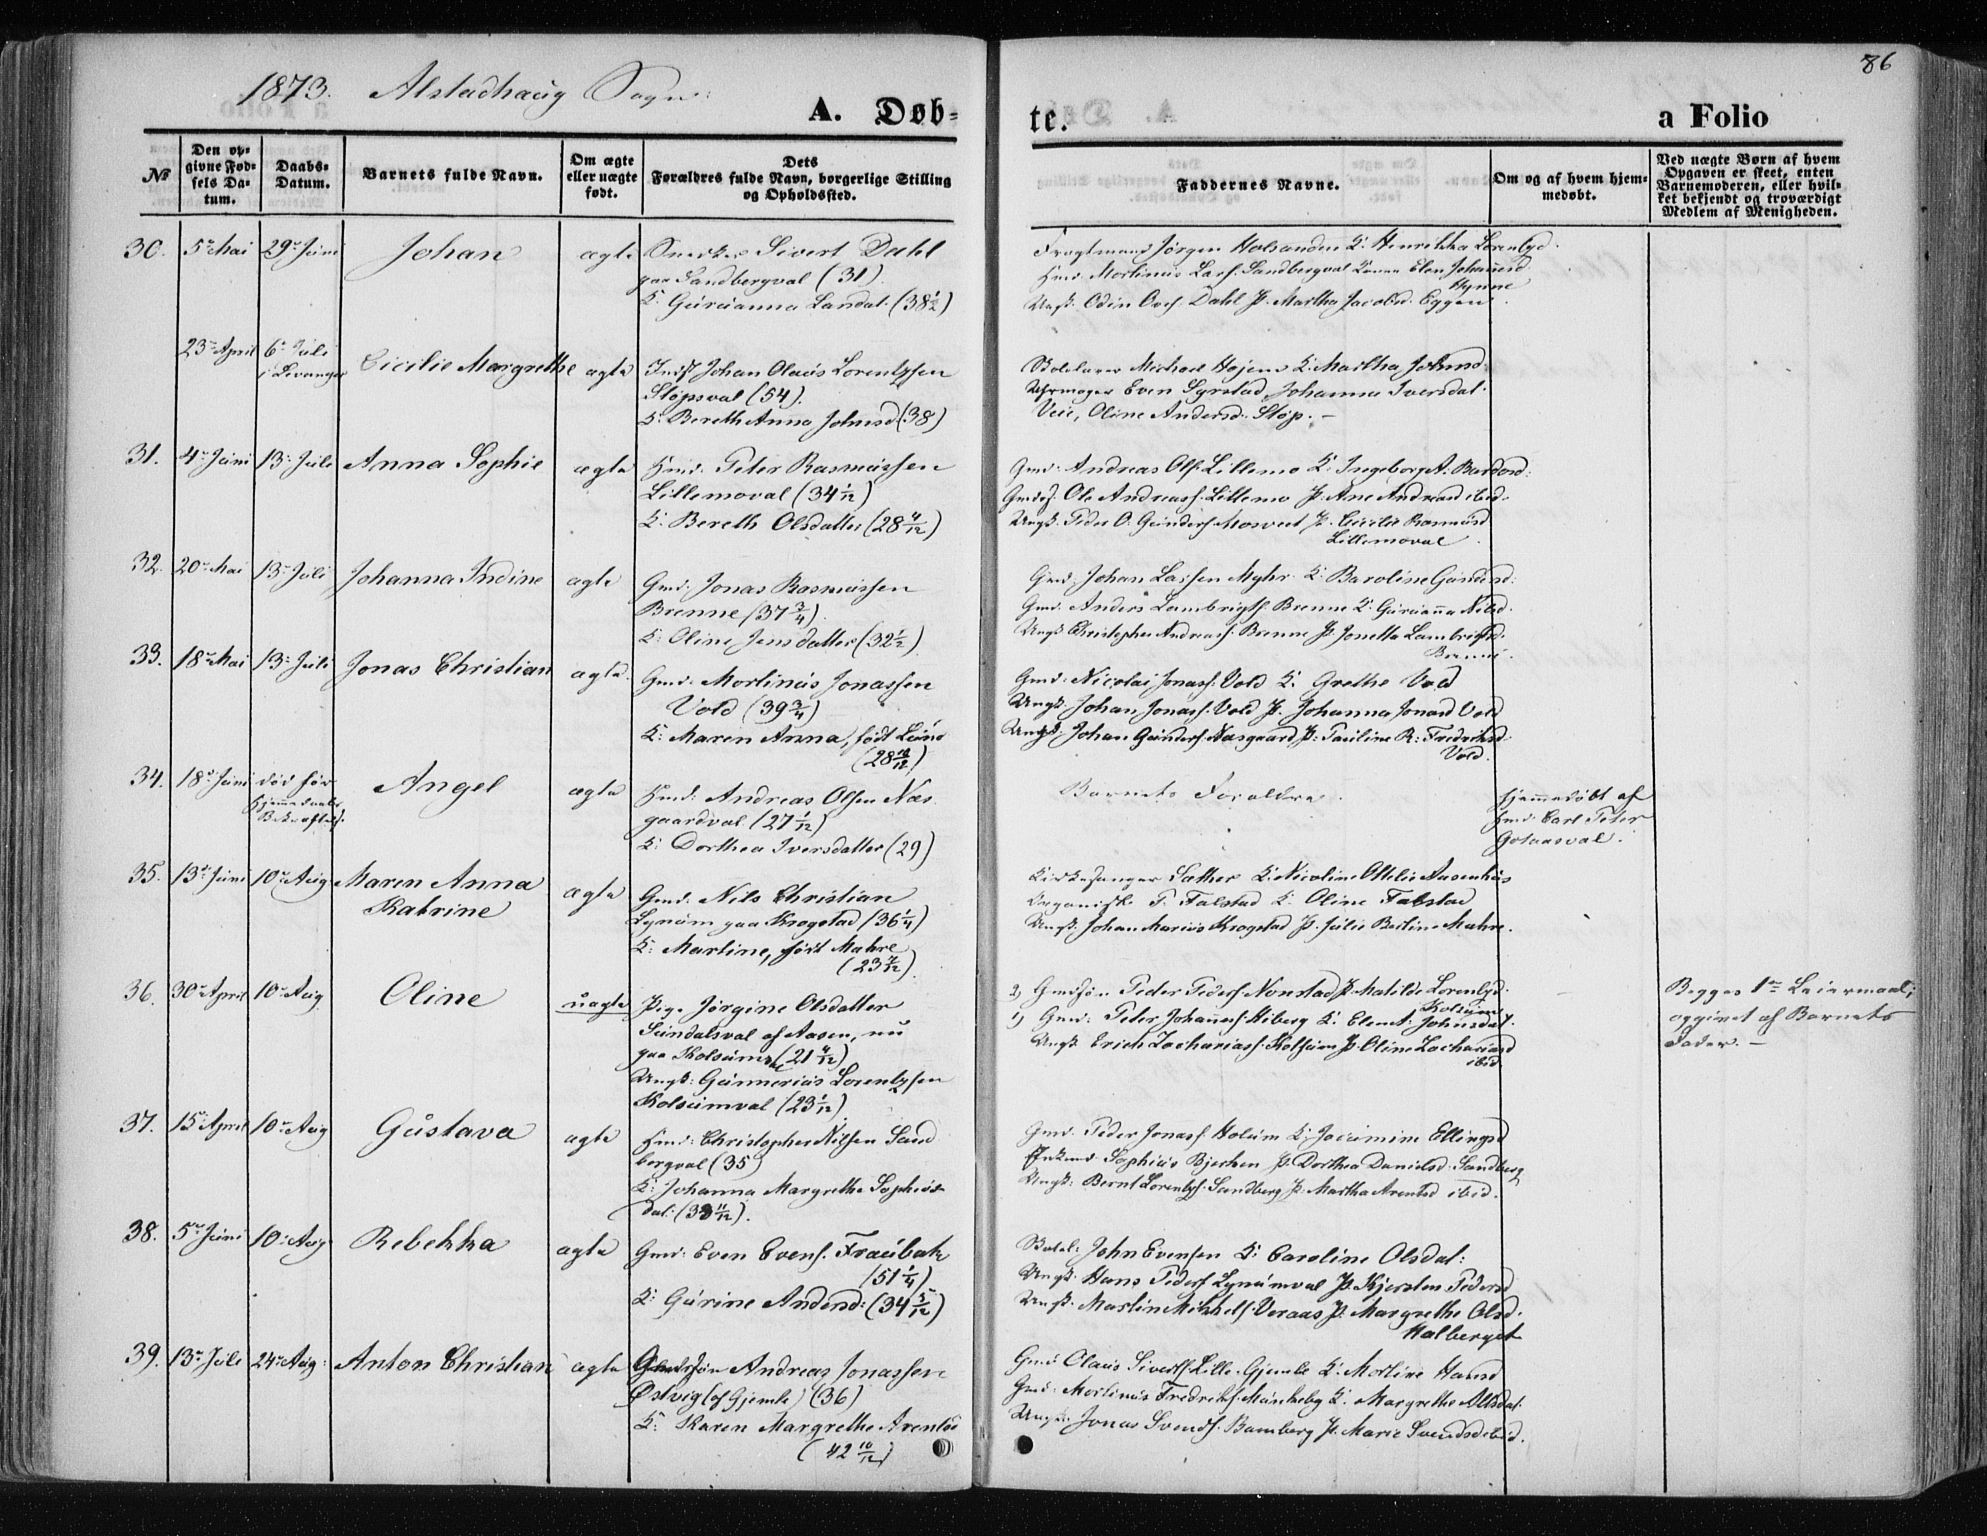 86
1873. Alstadhaug Sogn.
A. Døb-
te.
a Folio
No
Den op-
givne Fød-
sels Da-
tum.
Daabs-
Datum.
Barnets fulde Navn.
Om ægte
eller uægte
født.
Dets
Forældres fulde Navn, borgerlige Stilling
og Opholdssted.
Faddernes Navne.
Om og af hvem hjem-
medøbt.
Ved uægte Børn af hvem
Opgaven er skeet, enten
Barnemoderen, eller hvil-
ket bekjendt og troværdigt
Medlem af Menigheden.
30. 5te Mai 29de Juni Johan ægte
Snedker Sivert Dahl
paa Sandbergval (31)
K. Guruanna Landal. (38 1/2)
Jørgen K. Henrikka Lorentzd.
Hmd. Mortinus Larss. Sandbergval Konen Elen Johannesd.
Hynne
Ungk. Odin Dahl P. Martha Jacobsd. Eggen.
23de April 6te Juli
i Levanger
Cicilie Margrethe ægte
Indst Johan Olaus Lorentzsen
Støpsval (54).
K. Bereth Anna Johnsd (38)
Michael Hojem K. Martha Johnsd.
Uhrmager Even Syrstad Johanna Iversdat.
Veie, Oline Andersd. Støp. -
31. 4de Juni 13de Juli Anna Sophie ægte
Hmd. Peter Rasmussen
Lillemoval (34 1/12)
K. Bereth Olsdatter (28 4/12)
Gmd. Andreas Ols. Lillemo K. Ingeborg A. Bardosd.
Gmds. Ole Andreass. Lillemo P. Ane Andreasd ibid.
Ungk. Peder O. Gunders. Mosveet P. Cicilie Rasmusd
Lillemoval
32. 20de Mai 13de Juli Johanna Indine ægte
Gmd. Jonas Rasmussen
Brenne (37 3/4).
K. Oline Jensdatter (32 1/2).
Gmd. Johan Lassen Myhr K. Baroline Gundersd.
Gmd. Anders Lambrigts. Brenne K. Guruanna Nilsd.
Ungk. Christopher Andreass. Brenne P. Jonetta Lambrigtsd.
Brenne.
33. 18de Mai 13de Juli Jonas Christian ægte
Gmd. Mortinus Jonassen
Vold (39 3/4)
K. Maren Anna, født Lund
(28 10/12)
Gmd. Nicolai Jonass. Vold K. Grethe Vold
Ungk. Johan Jonass. Vold P. Johanna Jonasd Vold
Ungk. Johan Gunders. Nasgaard P. Pauline R. Fredriksd.
Vold.
34. 18de Juni død før
Hjemmedaabs
Bekræftels.
Angel ægte
Hmd. Andreas Olsen Nas
gaardval (27 1/12)
K. Dorthea Iversdatter (29)
Barnets Forældre.
hjemmedøbt af
Hmd. Carl Peter
Gotaasval.
35. 13de Juni 10de Aug Maren Anna
Katrine
ægte
Gmd. Nils Christian
Lynum paa Krogstad (36 1/4)
K. Martine, født Mahre
(23 7/12).
Kirkesanger Sæther K. Nicoline Ottilie Aasenhus
Organist P. Falstad K. Oline Falstad
Ungk. Johan Marius Krogstad P. Julie Bertine Mahre.
36. 30de April 10de Aug Oline uægte
Pige Jørgine Olsdatter
Sundalsval af Aasen, nu
paa Kolsum (21 4/12)
Ungk. Gunnerius Lorentzsen
Kolsumval (23 1/12)
2) Peder Peders. Nonstad P. Matilde Lorentzd.
Kolsum
1) Gmd. Peter Johanness. Hiberg K. Elen A. Johnsdat.
Ungk. Erich Zachariass. Kolsum P. Oline Zachariasd
ibid.
Begges 1te Leiermaal;
opgivet af Barnets
Fader. -
37. 15de April 10de Aug Gustava ægte
Hmd. Christopher Nilsen Sand
bergval (35)
K. Johanna Margrethe Sophius
dat. (33 11/12).
Gmd. Peder Jonass. Holum K. Ellingsd
Sophius Bjerken P. Dorthea Danielsd. Sandberg
Ungk. Bernt Lorentzs. Sandberg P. Martha Arentsd ibid.
38. 5te Juni 10de Aug Rebekka ægte
Gmd. Even Evens. Fraubak
(51 1/4)
K. Gurine Andersd. (34 5/12)
John Evensen K. Caroline Olsdat.
Ungk. Hans Peders. Lynumval P. Kjersten Pedersd
Ungk. Martin Mikkels. Veraas P. Margrethe Olsd.
Halberget
39. 13de Juli 24de Aug. Anton Christian ægte
Andreas Jonassen
Østvig (af Gjemle) (36)
K. Karen Margrethe Arentsd
(42 10/12)
Gmd Olaus Siverts. Lille-Gjemle K. Mortine Hansd
Gmd. Mortinus Fredriks. Munkeby K. Margrethe Olsdat.
Ungk. Jonas Svends. Bamberg P. Marie Svendsd ibid.